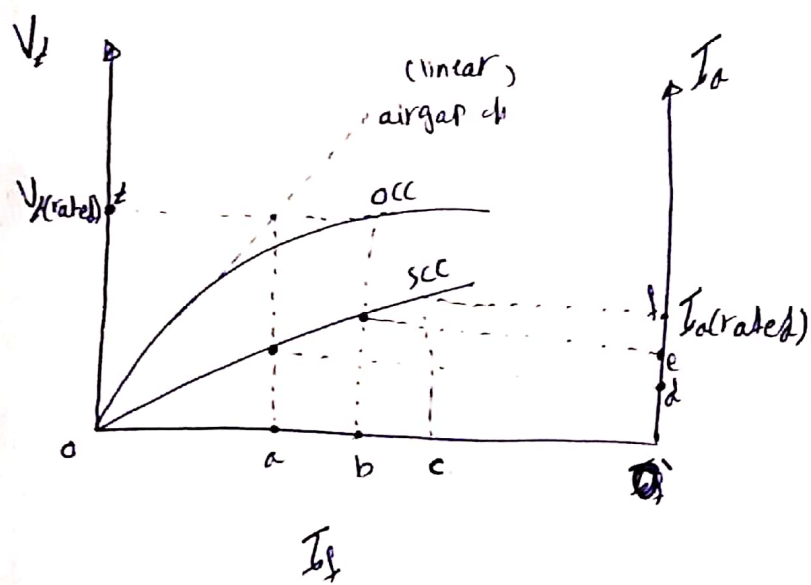 V_t
I_a
(linear)
airgap
V_t(rated) t
OCC
SCC
f I_a(rated)
e
d
o
a b c
I_f